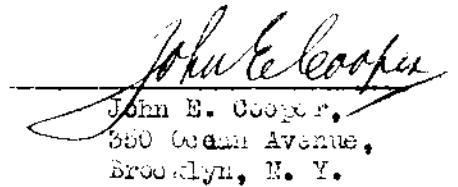 John E Cooper
John E. Cooper,
350 Ocean Avenue,
Brooklyn, N. Y.